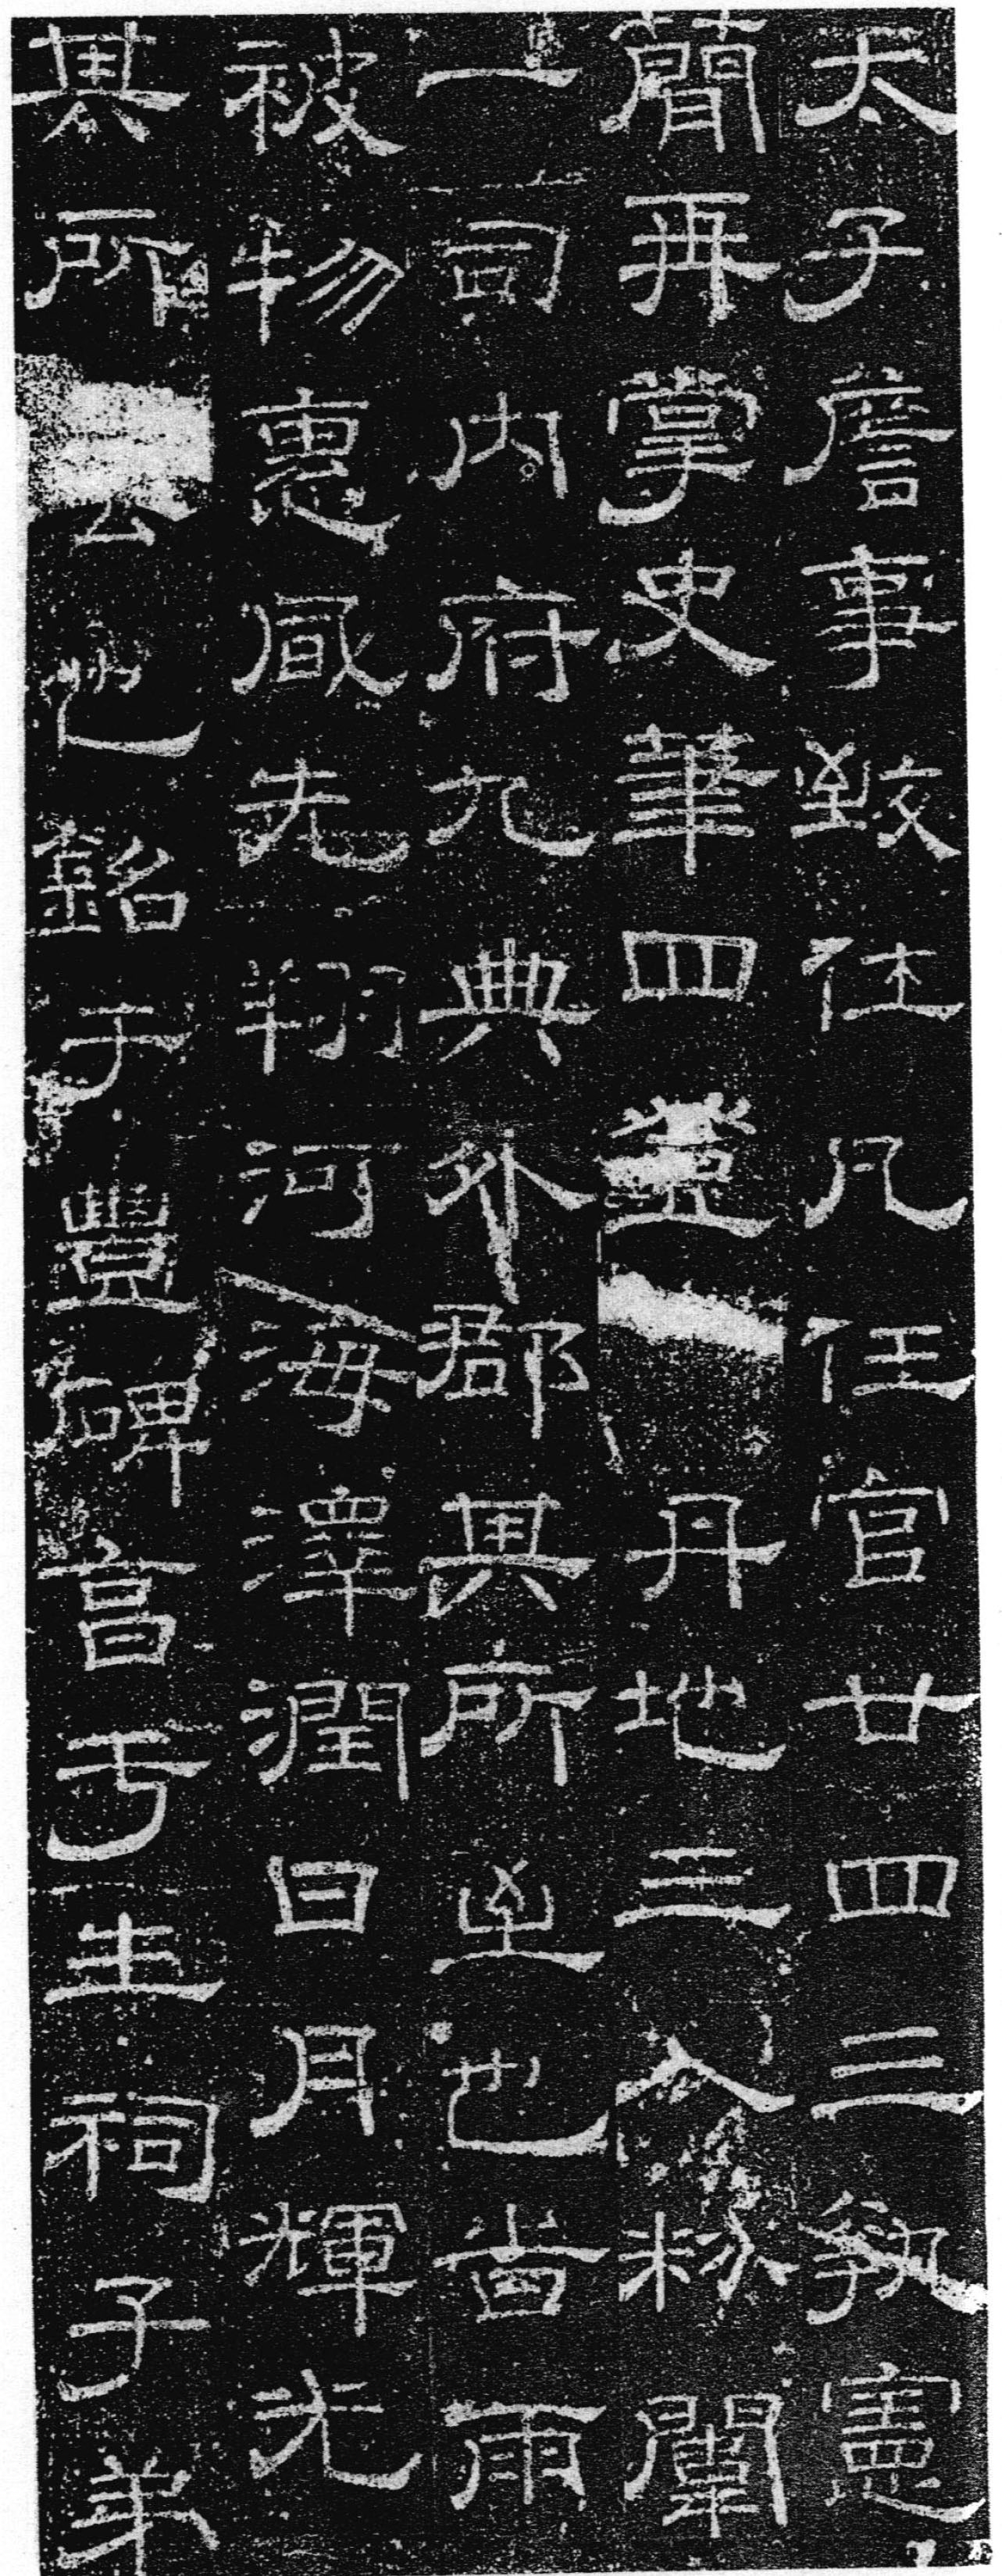 太子詹事致仕凡任官廿四三執憲
簡再掌史筆四登丹地三入粉闈
一司內府九典外郡其所至也旹雨
被物惠風先翔河海澤潤日月輝光
其所去也銘于豐碑亯亏生祠子弟